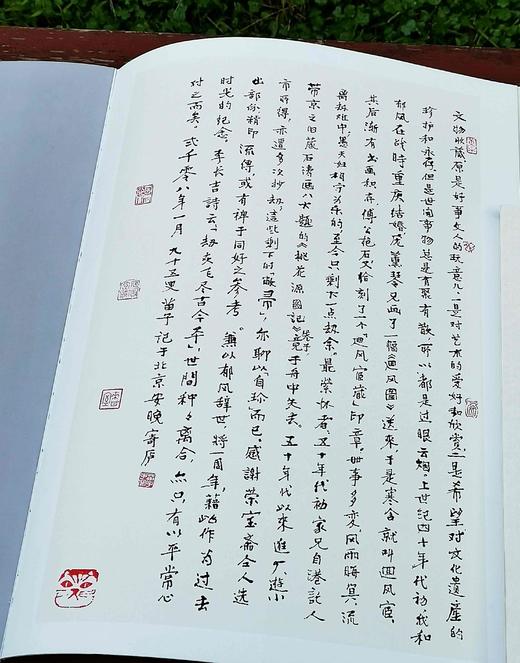 文物收藏原是好事文人的玩意儿：一是对艺术的爱好和欣赏，二是希望对文化遗产的
珍护和永存。但是世间事物总是有聚有散，所以都是过眼云烟。上世纪四十年代初我和
郁风在战时重庆结婚，庞薰琹兄画了一幅《迎风图》送来，于是寒舍就叫迎风宦。
其后渐有书画积存，傅公抱石又给刻了一个「迎风宦藏」印章。世事多变，风雨晦冥，流
离劫难中，愚夫妇相守为乐的至今只剩下一点劫余。最萦怀者，五十年代初家兄自港托人
带京之旧藏石涛画八大题的《桃花源图记》卷子竟于舟中失去。五十年代以来逛厂游小
市所得，亦遭多次抄劫，这些剩下的敝帚，亦聊以自珍而已。感谢荣宝斋仝人选
出部份精印流传，或有裨于同好之参考。兼以郁风辞世将一周年，藉此作为过去
时光的纪念。李长吉诗云：「劫灰飞尽古今平」，世间种々离合，亦只有以平常心
对之而矣。贰千零八年一月 九十五叟苗子记于北京安晚寄庐